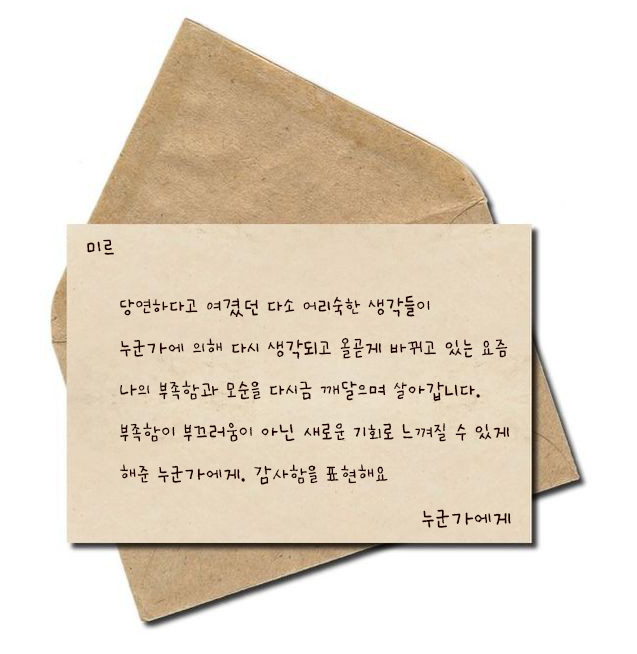 미르
당연하다고 여겼던 다소 어리숙한 생각들이
누군가에 의해 다시 생각되고 올곧게 바뀌고 있는 요즘
나의 부족함과 모순을 다시금 깨달으며 살아갑니다.
부족함이 부끄러움이 아닌 새로운 기회로 느껴질 수 있게
해준 누군가에게. 감사함을 표현해요
누군가에게